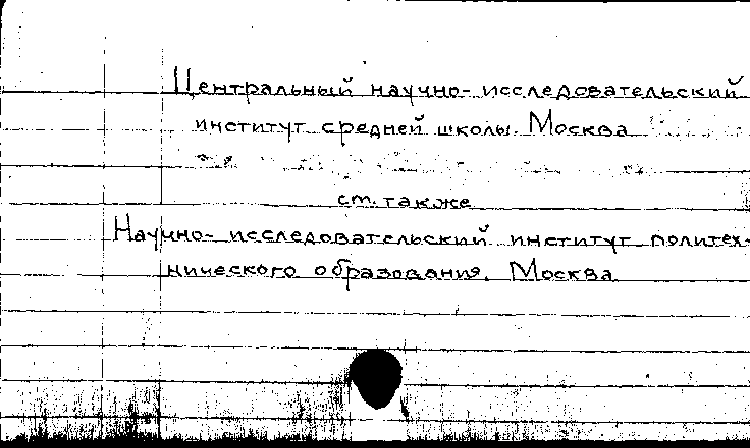 Центральный научно-исследовательский
институт средней школы. Москва
см. также
Научно-исследовательский институт политех-
нического образования. Москва